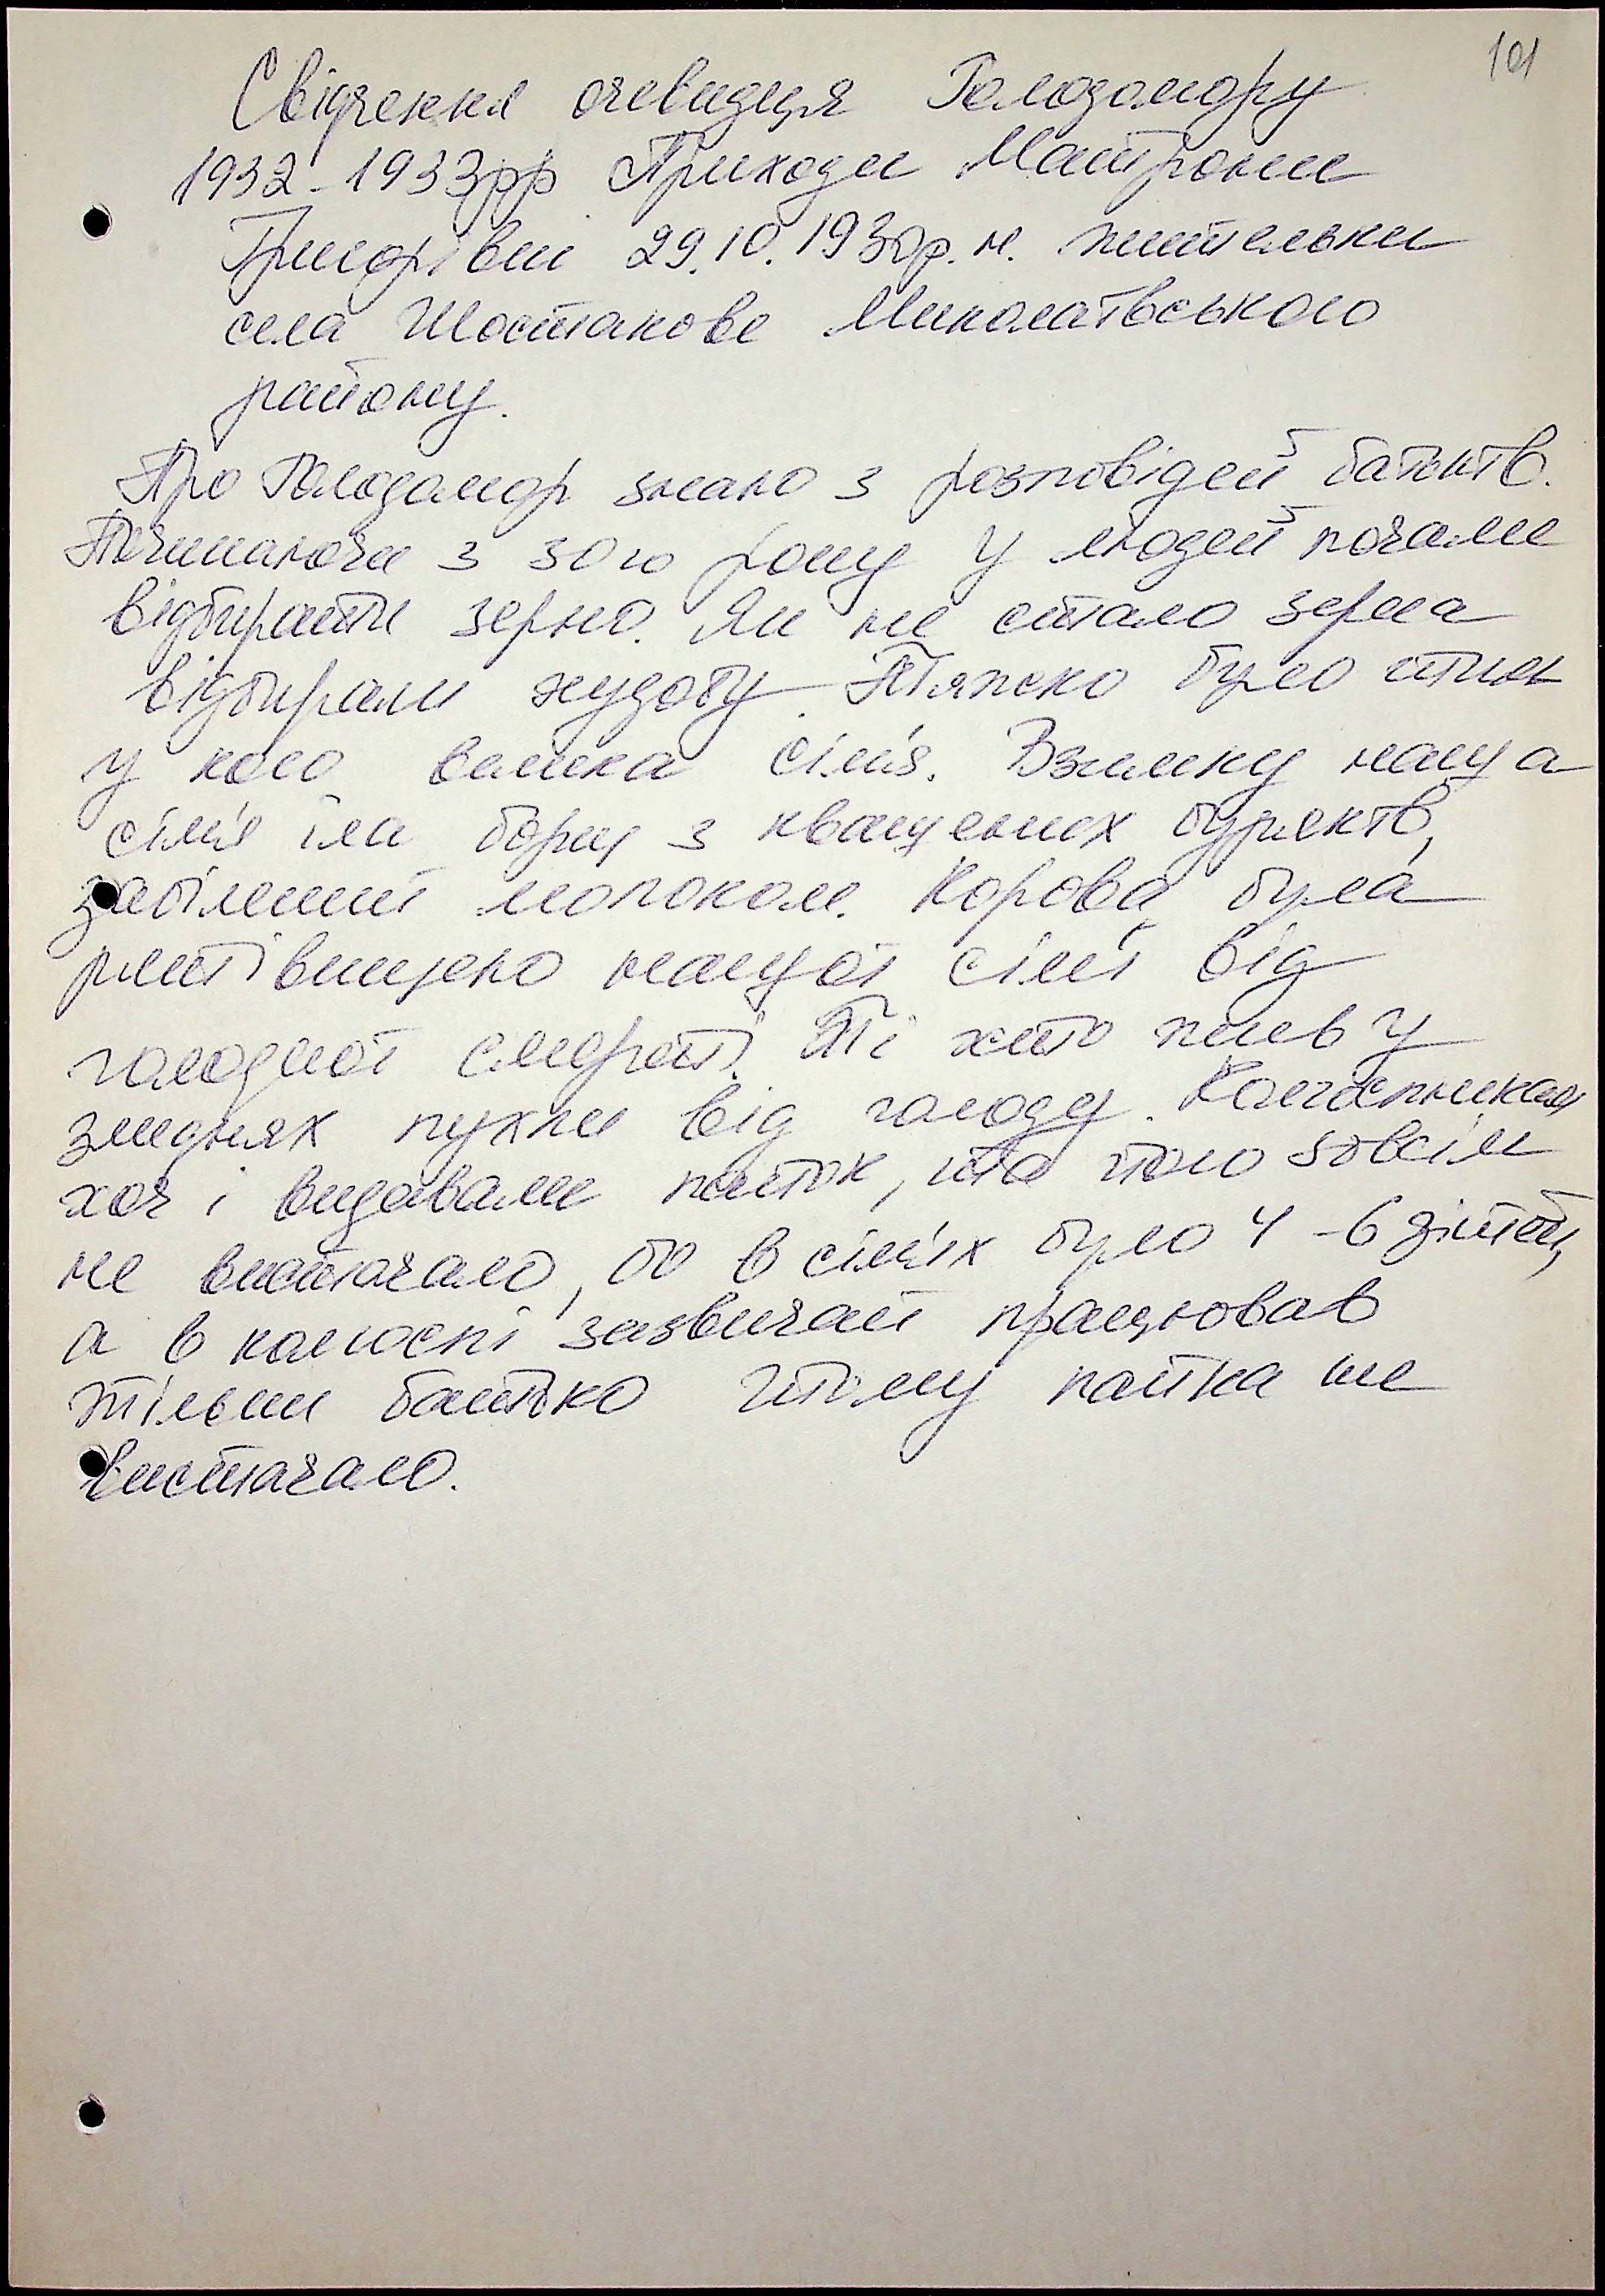 101
Свідчення очевидця Голодомору
1932-1933рр Приходи Матрони
Григорівни 29.10.1930р.н. жительки
села Шостакове Миколаївського
району.
Про Голодомор знаю з розповідей батьків.
Починаючи з 30го року у людей почали
відбирати зерно. Як не стало зерна
відбирали худобу. Тяжко було тим
у кого велика сім'я. Взимку наша
сім'я їла борщ з квашених буряків,
забілений молоком. Корова була
рятівницею нашої сім'ї від
голодної смерті. Ті хто жив у
злиднях пухли від голоду. Колгоспникам
хоч і видавали пайок, та його зовсім
не вистачало, бо в сім'ях було 4-6 дітей,
а в колгоспі зазвичай працював
тільки батько йтому пайка не
вистачало.